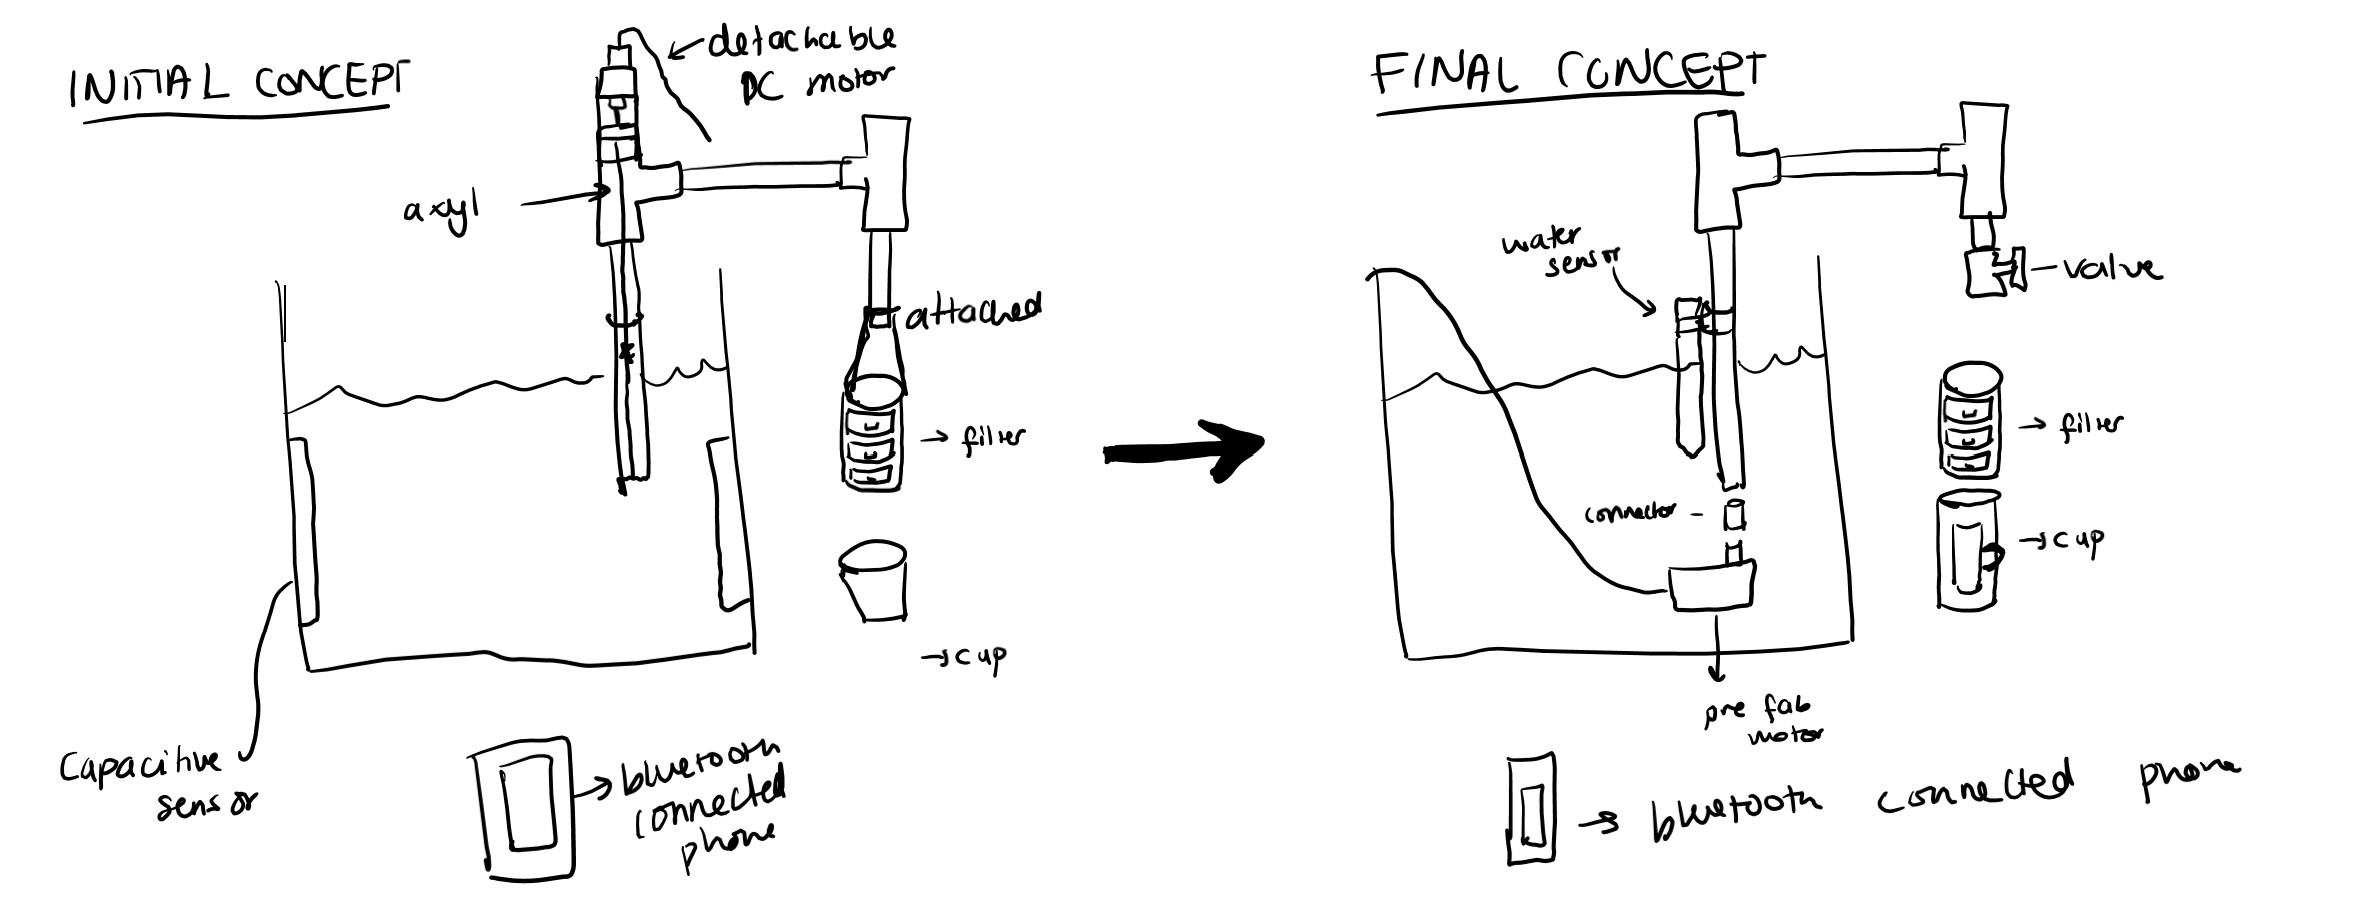 INITIAL CONCEPT
detachable
DC motor
axyl
attached
filter
cup
Capacitive
sensor
bluetooth
connected
phone
FINAL CONCEPT
water
sensor
valve
filter
connector
cup
pre fab
motor
bluetooth connected phone